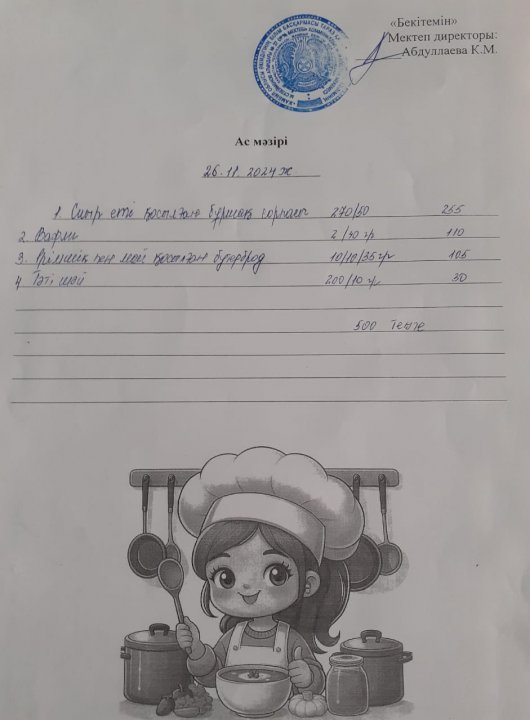 «Бекітемін»
Мектеп директоры:
Абдуллаева К.М.
Ас мәзірі
26.11.2024ж.
1. Сиыр еті қосылған бұршақ горпасы 270/50 255
2. Вафли 2/30 гр 110
3. Ірімшік пен май қосылған бутерброд 10/10/35 гр 105
4 Тәтті шай 200/10 гр 30
500 Теңге